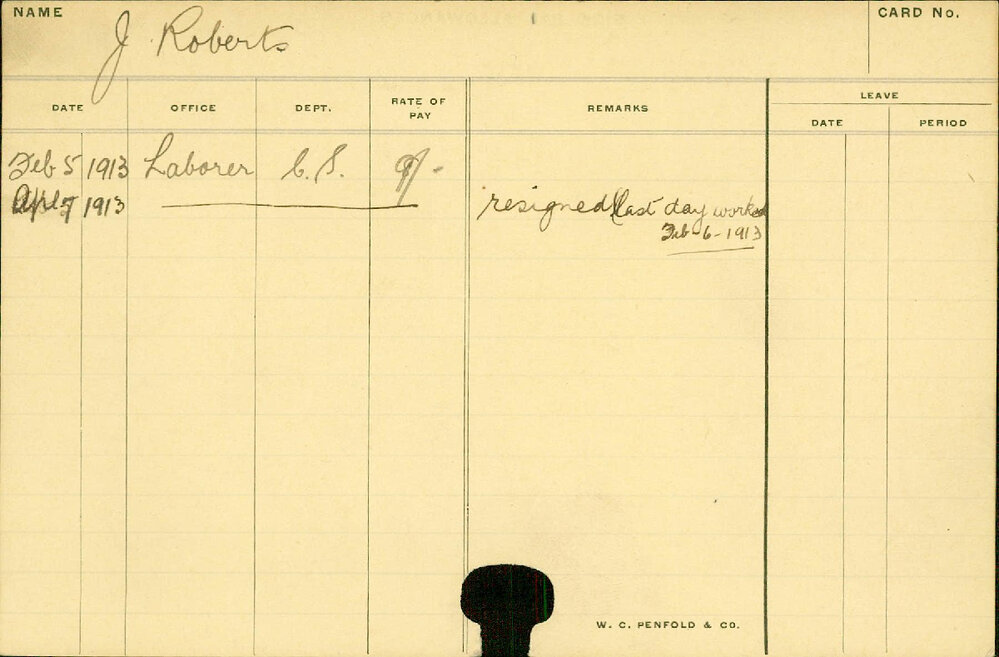 NAME
J Roberts
CARD No.
DATE OFFICE DEPT. RATE OF PAY REMARKS LEAVE
DATE PERIOD
Feb 5 1913 Laborer C.S. 9/-
Apl 7 1913 resigned (last day worked
Feb-6-1913
W. C. PENFOLD & CO.